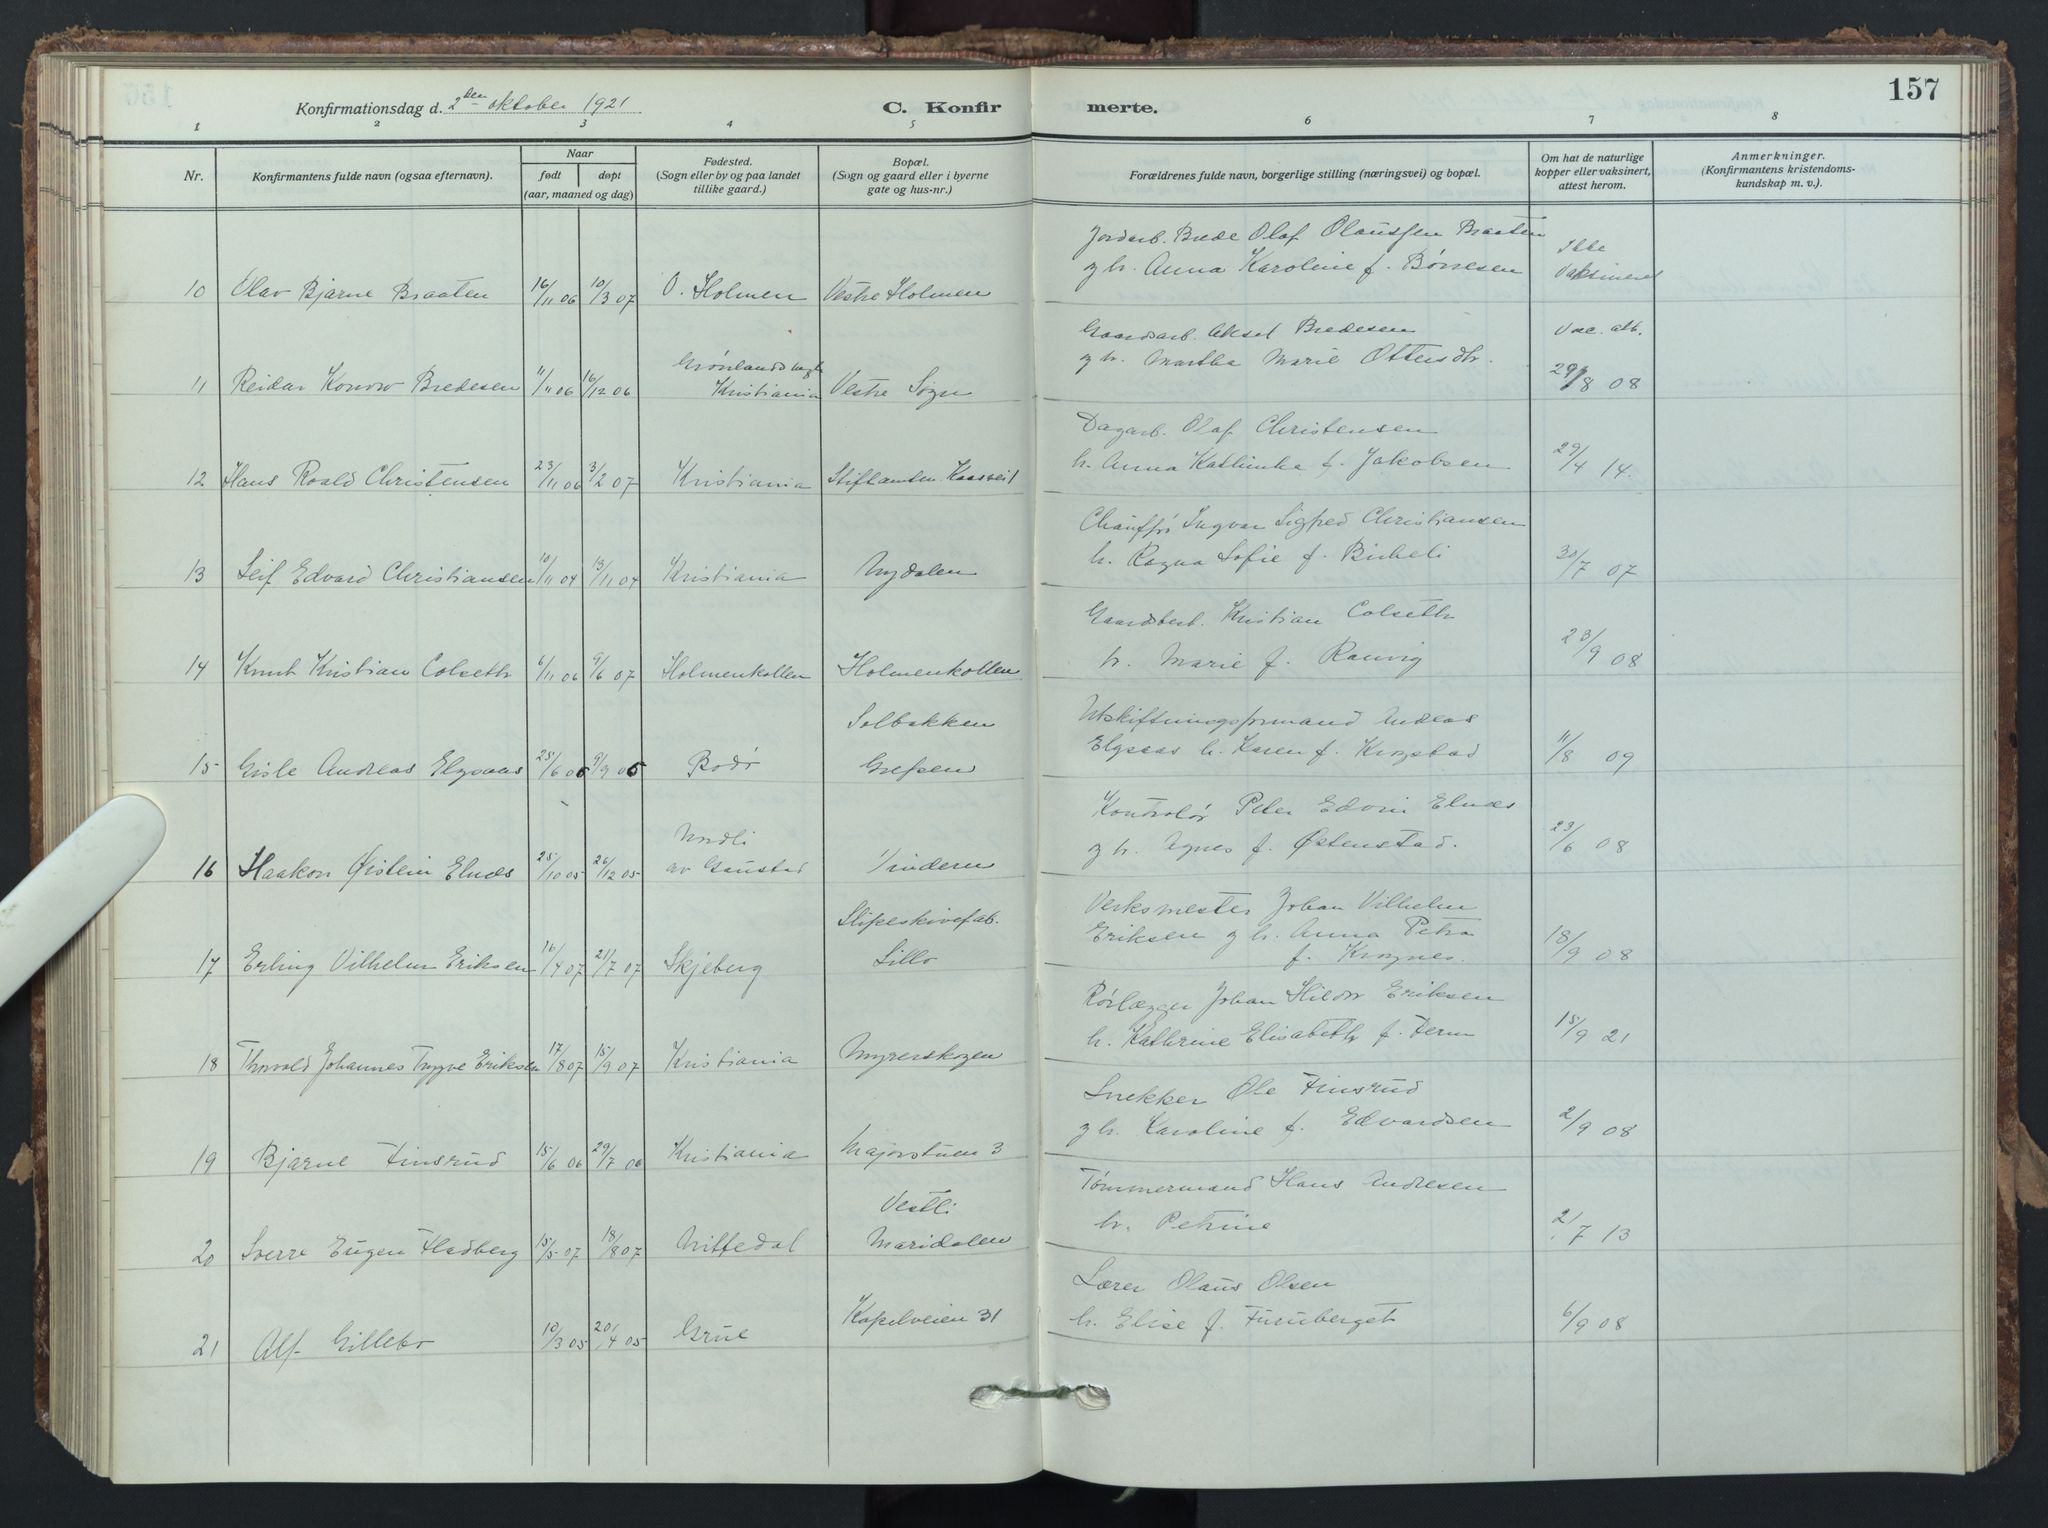 157
Konfirmationsdag d. 2den oktober 1921
C. Konfir merte.
1 2 3 4 5 6 7 8
Nr.
Konfirmantens fulde navn (ogsaa efternavn).
Naar
født døpt
(aar, maaned og dag)
Fødested.
(Sogn eller by og paa landet
tillike gaard.)
Bopæl.
(Sogn og gaard eller i byerne
gate og hus-nr.)
Forældrenes fulde navn, borgerlige stilling (næringsvei) og bopæl.
Om hat de naturlige
kopper eller vaksinert,
attest herom.
Anmerkninger.
(Konfirmantens kristendoms-
kundskap m. v.).
Jordarb. Brede Olaf Olaussen Braaten
Ikke
og h. Anna Karoline f. Børresen
Vaksineret
10 Olav Bjarne Braaten 16/11 06 10/3 07 O. Holmen Vestre Holmen
Gaardsarb. Aksel Bredesen
Vac. att.
og h. Martha Marie Ottersdtr.
29/8 08
Grønlands
11 Reidar Konow Bredesen 11/11 06 16/12 06 Kristiania Vestre Sogn
Dagarb. Olaf Christensen
h. Anna Kathinka f. Jakobsen 29/4 14.
12 Hans Roald Christensen 23/11 06 3/2 07 Kristiania Stiftamtm. Kaasvei 1
Chauffør Ingvar Sigfred Christiansen
h. Ragna Sofie f. Bicheli 30/7 07
13 Leif Edvard Christiansen 10/11 04 13/11 04 Kristiania Nydalen
Gaardsbest. Kristian Colseth
h. Marie f. Ranvig 23/9 08
14 Knut Kristian Colseth 6/11 06 9/6 07 Holmenkollen Holmenkollen
Solbakken
Utskiftningsformand Andreas
Elgsaas h. Karen f. Krogstad 11/8 09
15 Gisle Andreas Elgsaas 25/6 06 9/9 06 Bodø Grefsen
Kontrolør Peter Edvin Elnæs
og h. Agnes f. Østenstad. 23/6 08
Nordli
16 Haakon Øistein Elnæs 25/10 05 26/12 05 av Gaustad Vinderen
Slipeskivefab.
Verksmester Johan Vilhelm
Eriksen og h. Anna Petra
f. Krognes. 18/9 08
17 Erling Vilhelm Eriksen 16/4 07 21/7 07 Skjeberg Lillo
Rørlægger Johan Hildor Eriksen
h. Kathrine Elisabeth f. Ferm 15/9 21
18 Thorvald Johannes Trygve Eriksen 17/8 07 15/9 07 Kristiania Myrerskogen
Snekker Ole Finsrud
og h. Karoline f. Edvardsen 2/9 08
19 Bjarne Finsrud 15/6 06 29/7 06 Kristiania Majorstuen 3
Tømmermand Hans Andresen
Vestli
h. Petrine 21/7 13
20 Sverre Eugen Fladberg 15/5 07 18/8 07 Nittedal Maridalen
Lærer Olaus Olsen
Kapelveien 31
h. Elise f. Furuberget 6/9 08
21 Alf Gillebo 10/3 05 20/4 05 Grue